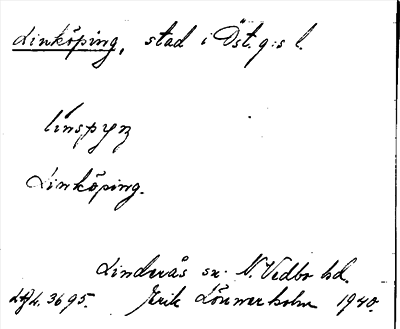 Linköping, stad i Öst. g:s l.
línspyŋ
Linköping.
Linderås sn. N. Vedbo hd.
Erik Lönnerholm 1940.